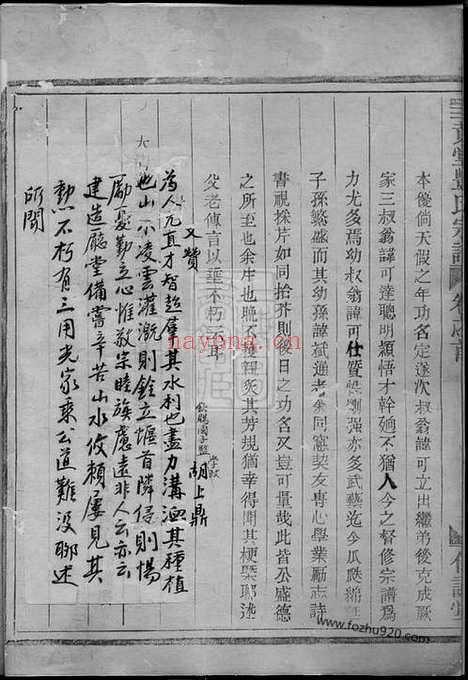 本優倘天假之年功名定遂次叔翁諱可立出繼弟後克成厥
家三叔翁諱可達聰明穎悟才幹廼不猶人今之督修宗譜爲
力尤多焉幼叔翁諱可仕賢剛强亦多武藝迄今瓜瓞綿
子孫繁盛而其幼孫諱斌通者與同窻契友專心學業勵志詩
書視採芹如同拾芥則後日之功名又豈可量哉此皆公盛德
之所至也余生也晚不親炙其芳規猶幸得聞其梗槩耶述
父老傳言以垂不朽云耳
欽賜國子監學政胡上鼎
又贊
為人元直才智超羣其水利也盡力溝洫其種植
也山不凌雲灌溉則銓立堰首隣侵則惕
勵憂勤立心惟敬宗睦族慮遠非人云亦云
建造廳堂備嘗辛苦山水攸賴屢見其
勳不朽有三用光家乘云道難沒聊述
所聞
www.fozhu920.com
nayona.cn